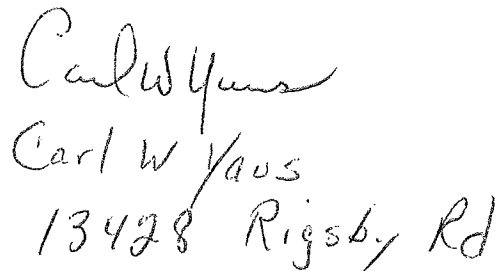 Carl W Yaus
Carl W Yaus
13428 Rigsby Rd